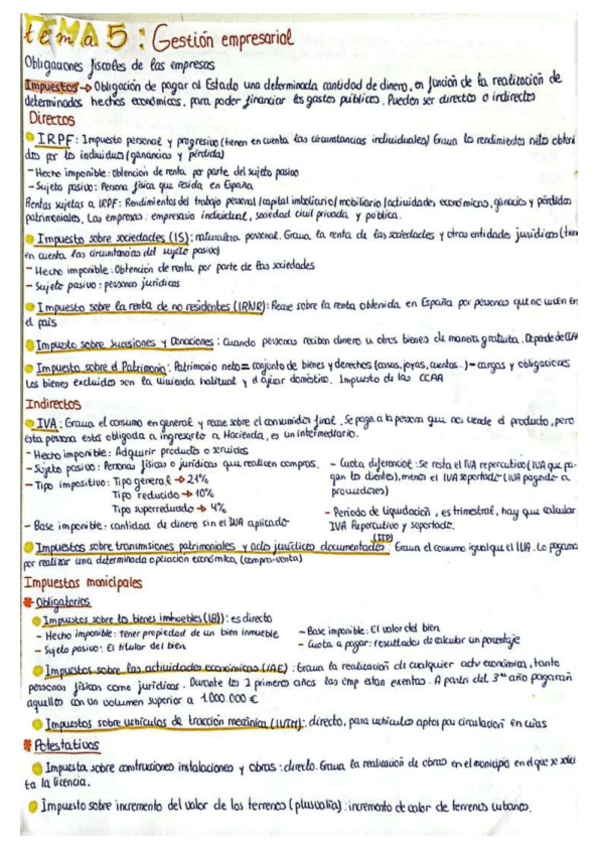 tema 5: Gestión empresarial
Obligaciones fiscales de las empresas
Impuestos → Obligación de pagar al Estado una determinada cantidad de dinero, en función de la realización de
determinados hechos económicos, para poder financiar los gastos públicos. Pueden ser directos o indirectos
Directos
IRPF: Impuesto personal y progresivo (tienen en cuenta las circunstancias individuales) Grava los rendimientos neto obteni
dos por los individuos (ganancias y pérdida)
- Hecho imponible: obtención de renta por parte del sujeto pasivo
- Sujeto pasivo: Persona física que resida en España
Rentas sujetas a IRPF: Rendimientos del trabajo personal/capital imboliario/mobiliario/actividades económicas, ganacios y pérdidas
patrimoniales. Las empresas: empresario individual, sociedad civil privada y pública.
Impuesto sobre sociedades (IS): naturaleza personal. Grava la renta de las sociedades y otras entidades jurídicas (tien
en cuenta las circunstancias del sujeto pasivo)
- Hecho imponible: Obtención de renta por parte de las sociedades
- Sujeto pasivo: personas jurídicas
Impuesto sobre la renta de no residentes (IRNR): Recae sobre la renta obtenida en España por personas que no viven en
el país
Impuesto sobre sucesiones y Donaciones: Cuando personas reciban dinero u otros bienes de manera gratuita. Depende de CCAA
Impuesto sobre el Patrimonio: Patrimonio neto = conjunto de bienes y derechos (casas, joyas, cuentas..) - cargas y obligaciones
Los bienes excluidos son la vivienda habitual y el ajuar doméstico. Impuesto de las CCAA
Indirectos
IVA: Grava el consumo en general y recae sobre el consumidor final. Se paga a la persona que nos vende el producto, pero
esta persona está obligada a ingresarlo a Hacienda, es un intermediario.
- Hecho imponible: Adquirir productos o servicios
- Sujeto pasivo: Personas físicas o jurídicas que realicen compras.
- Tipo impositivo: Tipo general → 21%
Tipo reducido → 10%
Tipo superreducido → 4%
- Base imponible: cantidad de dinero sin el IVA aplicado
- Cuota diferencial: Se resta el IVA repercutivo (IVA que pa-
gan los clientes), menos el IVA soportado (IVA pagado a
proveedores)
- Periodo de liquidación, es trimestral, hay que calcular
IVA Repercutivo y soportado.
Impuestos sobre transmisiones patrimoniales y acto jurídicos documentados: (ITP) Grava el consumo igual que el IVA. Lo pagamos
por realizar una determinada operación económica (compra-venta)
Impuestos municipales
* Obligatorios
Impuestos sobre los bienes inmuebles (IBI): es directo
- Hecho imponible: tener propiedad de un bien inmueble
- Sujeto pasivo: El titular del bien
- Base imponible: El valor del bien
- Cuota a pagar: resultados de calcular un porcentaje
Impuestos sobre las actividades económicas (IAE): Grava la realización de cualquier activ económica, tanto
personas físicas como jurídicas. Durante los 2 primeros años las emp estan exentas. A partir del 3er año pagarán
aquellos con un volumen superior a 1.000.000 €
Impuestos sobre vehículos de tracción mecánica (IVTM): directo, para vehículos aptos para circulación en vías
* Potestativos
Impuesta sobre construcciones instalaciones y obras: directo. Grava la realización de obras en el municipio en el que se solici
ta la licencia.
Impuesto sobre incremento del valor de los terrenos (plusvalía): incremento de valor de terrenos urbanos.